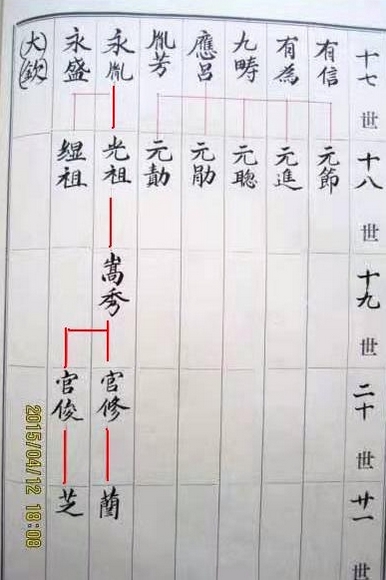 十七世
有信
有為
九疇
應呂
胤芳
永胤
永盛
大欽
十八世
元節
元進
元聰
元勛
元勣
光祖
緄祖
十九世
嵩秀
二十世
官修
官俊
廿一世
蘭
芝
2015/04/12 18:08